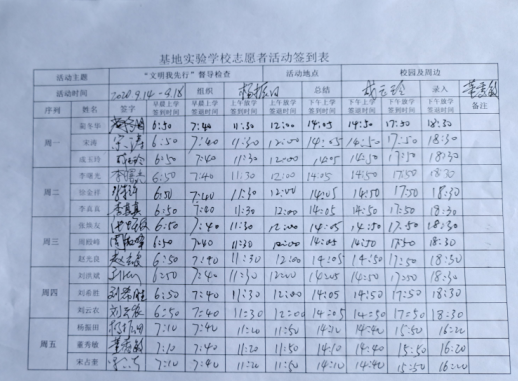 基地实验学校志愿者活动签到表
活动主题 “文明我先行”督导检查 活动地点 校园及周边
活动时间 2020.9.14-9.18 组织 总结 录入
序列 姓名 签字 早晨上学签到时间 早晨上学签退时间 上午放学签到时间 上午放学签退时间 下午上学签到时间 下午上学签退时间 下午放学签到时间 下午放学签退时间 备注
周一
6:50 7:40 11:30 12:00 14:05 14:50 17:50 18:30
宋涛 宋涛 6:50 7:40 11:30 12:00 14:05 14:50 17:50 18:30
成玉玲 6:50 7:40 11:30 12:00 14:05 14:50 17:50 18:30
周二
李曙光 6:50 7:40 11:30 12:00 14:05 14:50 17:50 18:30
徐金祥 6:50 7:40 11:30 12:00 14:05 14:50 17:50 18:30
李真真 6:50 7:40 11:30 12:00 14:05 14:50 17:50 18:30
周三
张焕友 6:50 7:40 11:30 12:00 14:05 14:50 17:50 18:30
周殿峰 6:50 7:40 11:30 12:00 14:05 14:50 17:50 18:30
赵光良 6:50 7:40 11:30 12:00 14:05 14:50 17:50 18:30
周四
刘洪斌 6:50 7:40 11:30 12:00 14:05 14:50 17:50 18:30
刘希胜 刘希胜 6:50 7:40 11:30 12:00 14:05 14:50 17:50 18:30
刘云农 6:50 7:40 11:30 12:00 14:05 14:50 17:50 18:30
周五
杨振田 7:10 7:40 11:20 11:50 14:10 14:40 15:50 16:20
董秀敏 董秀敏 7:10 7:40 11:20 11:50 14:10 14:40 15:50 16:20
宋占奎 7:10 7:40 11:20 11:50 14:10 14:40 15:50 16:20